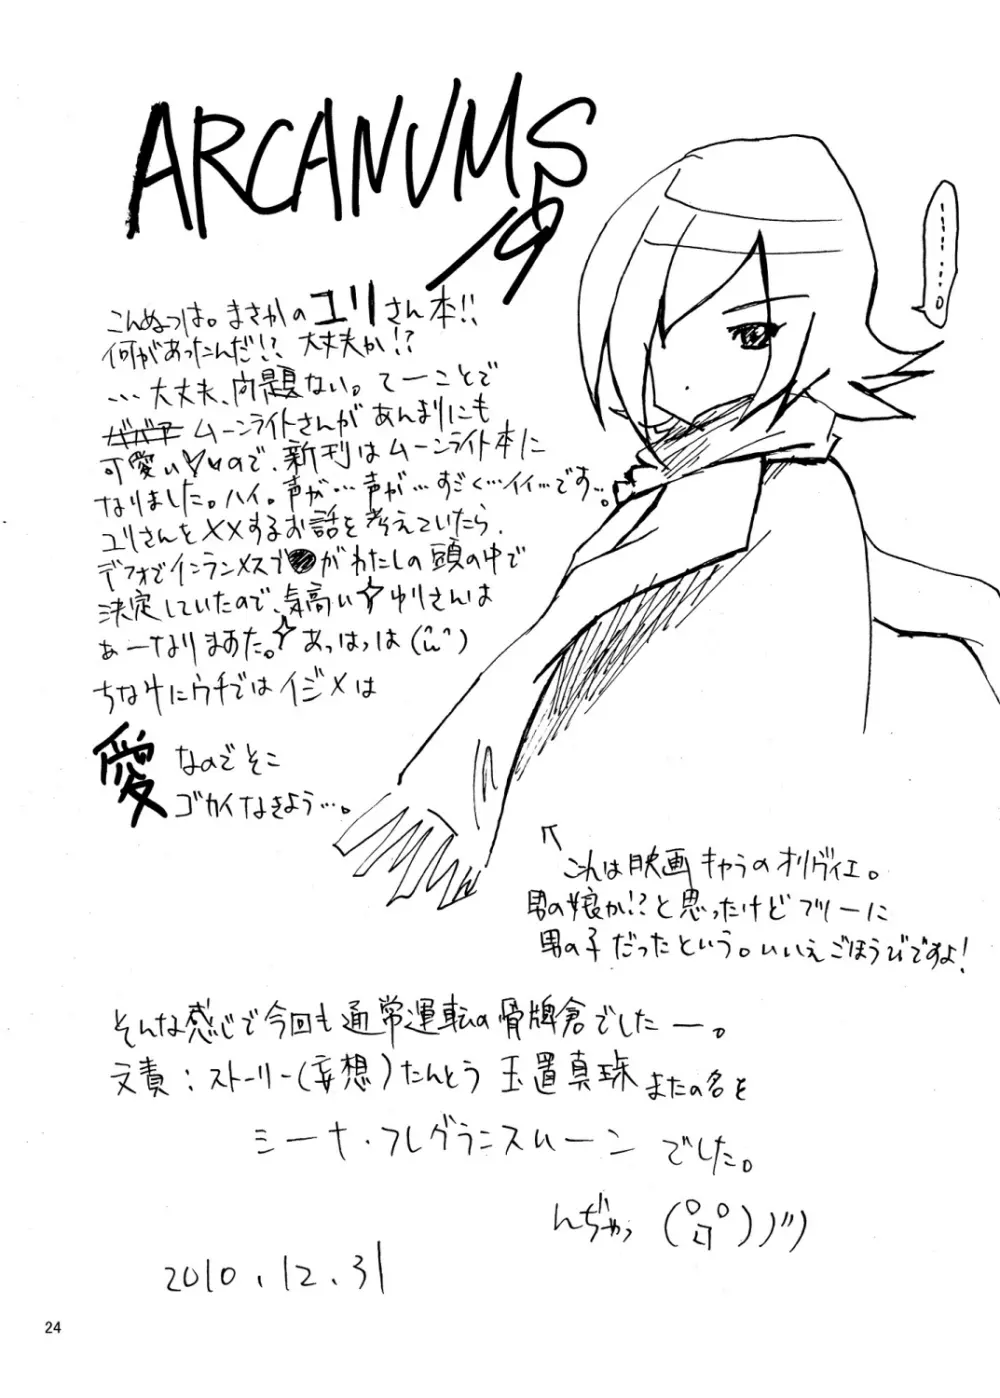 ARCANUMS
19
こんぬつは。まさかのユリさん本!!
何があったんだ!? 大丈夫か!?
…大丈夫、問題ない。てーことで
ムーンライトさんがあんまりにも
可愛い♡ので、新刊はムーンライト本に
なりました。ハイ。声が…声が…すごく…イイ…です…。
ユリさんを××するお話を考えていたら、
デフォでインランメスで●がわたしの頭の中で
決定していたので、気高い☆ゆりさんは
あーなりまあた。☆あっはっは(^ω^)
ちなみにウチではイジメは
愛なのでそこ
ゴカイなきよう…。
………。
↖これは映画キャラのオリヴィエ。
男の娘か!?と思ったけどフツーに
男の子だったという。いいえごほうびですよ!
そんな感じで今回も通常運転の骨牌倉でしたー。
文責:ストーリー(妄想)たんとう 玉置真珠 またの名を
シーナ・フレグランスムーン でした。
んぢゃっ
2010.12.31
24